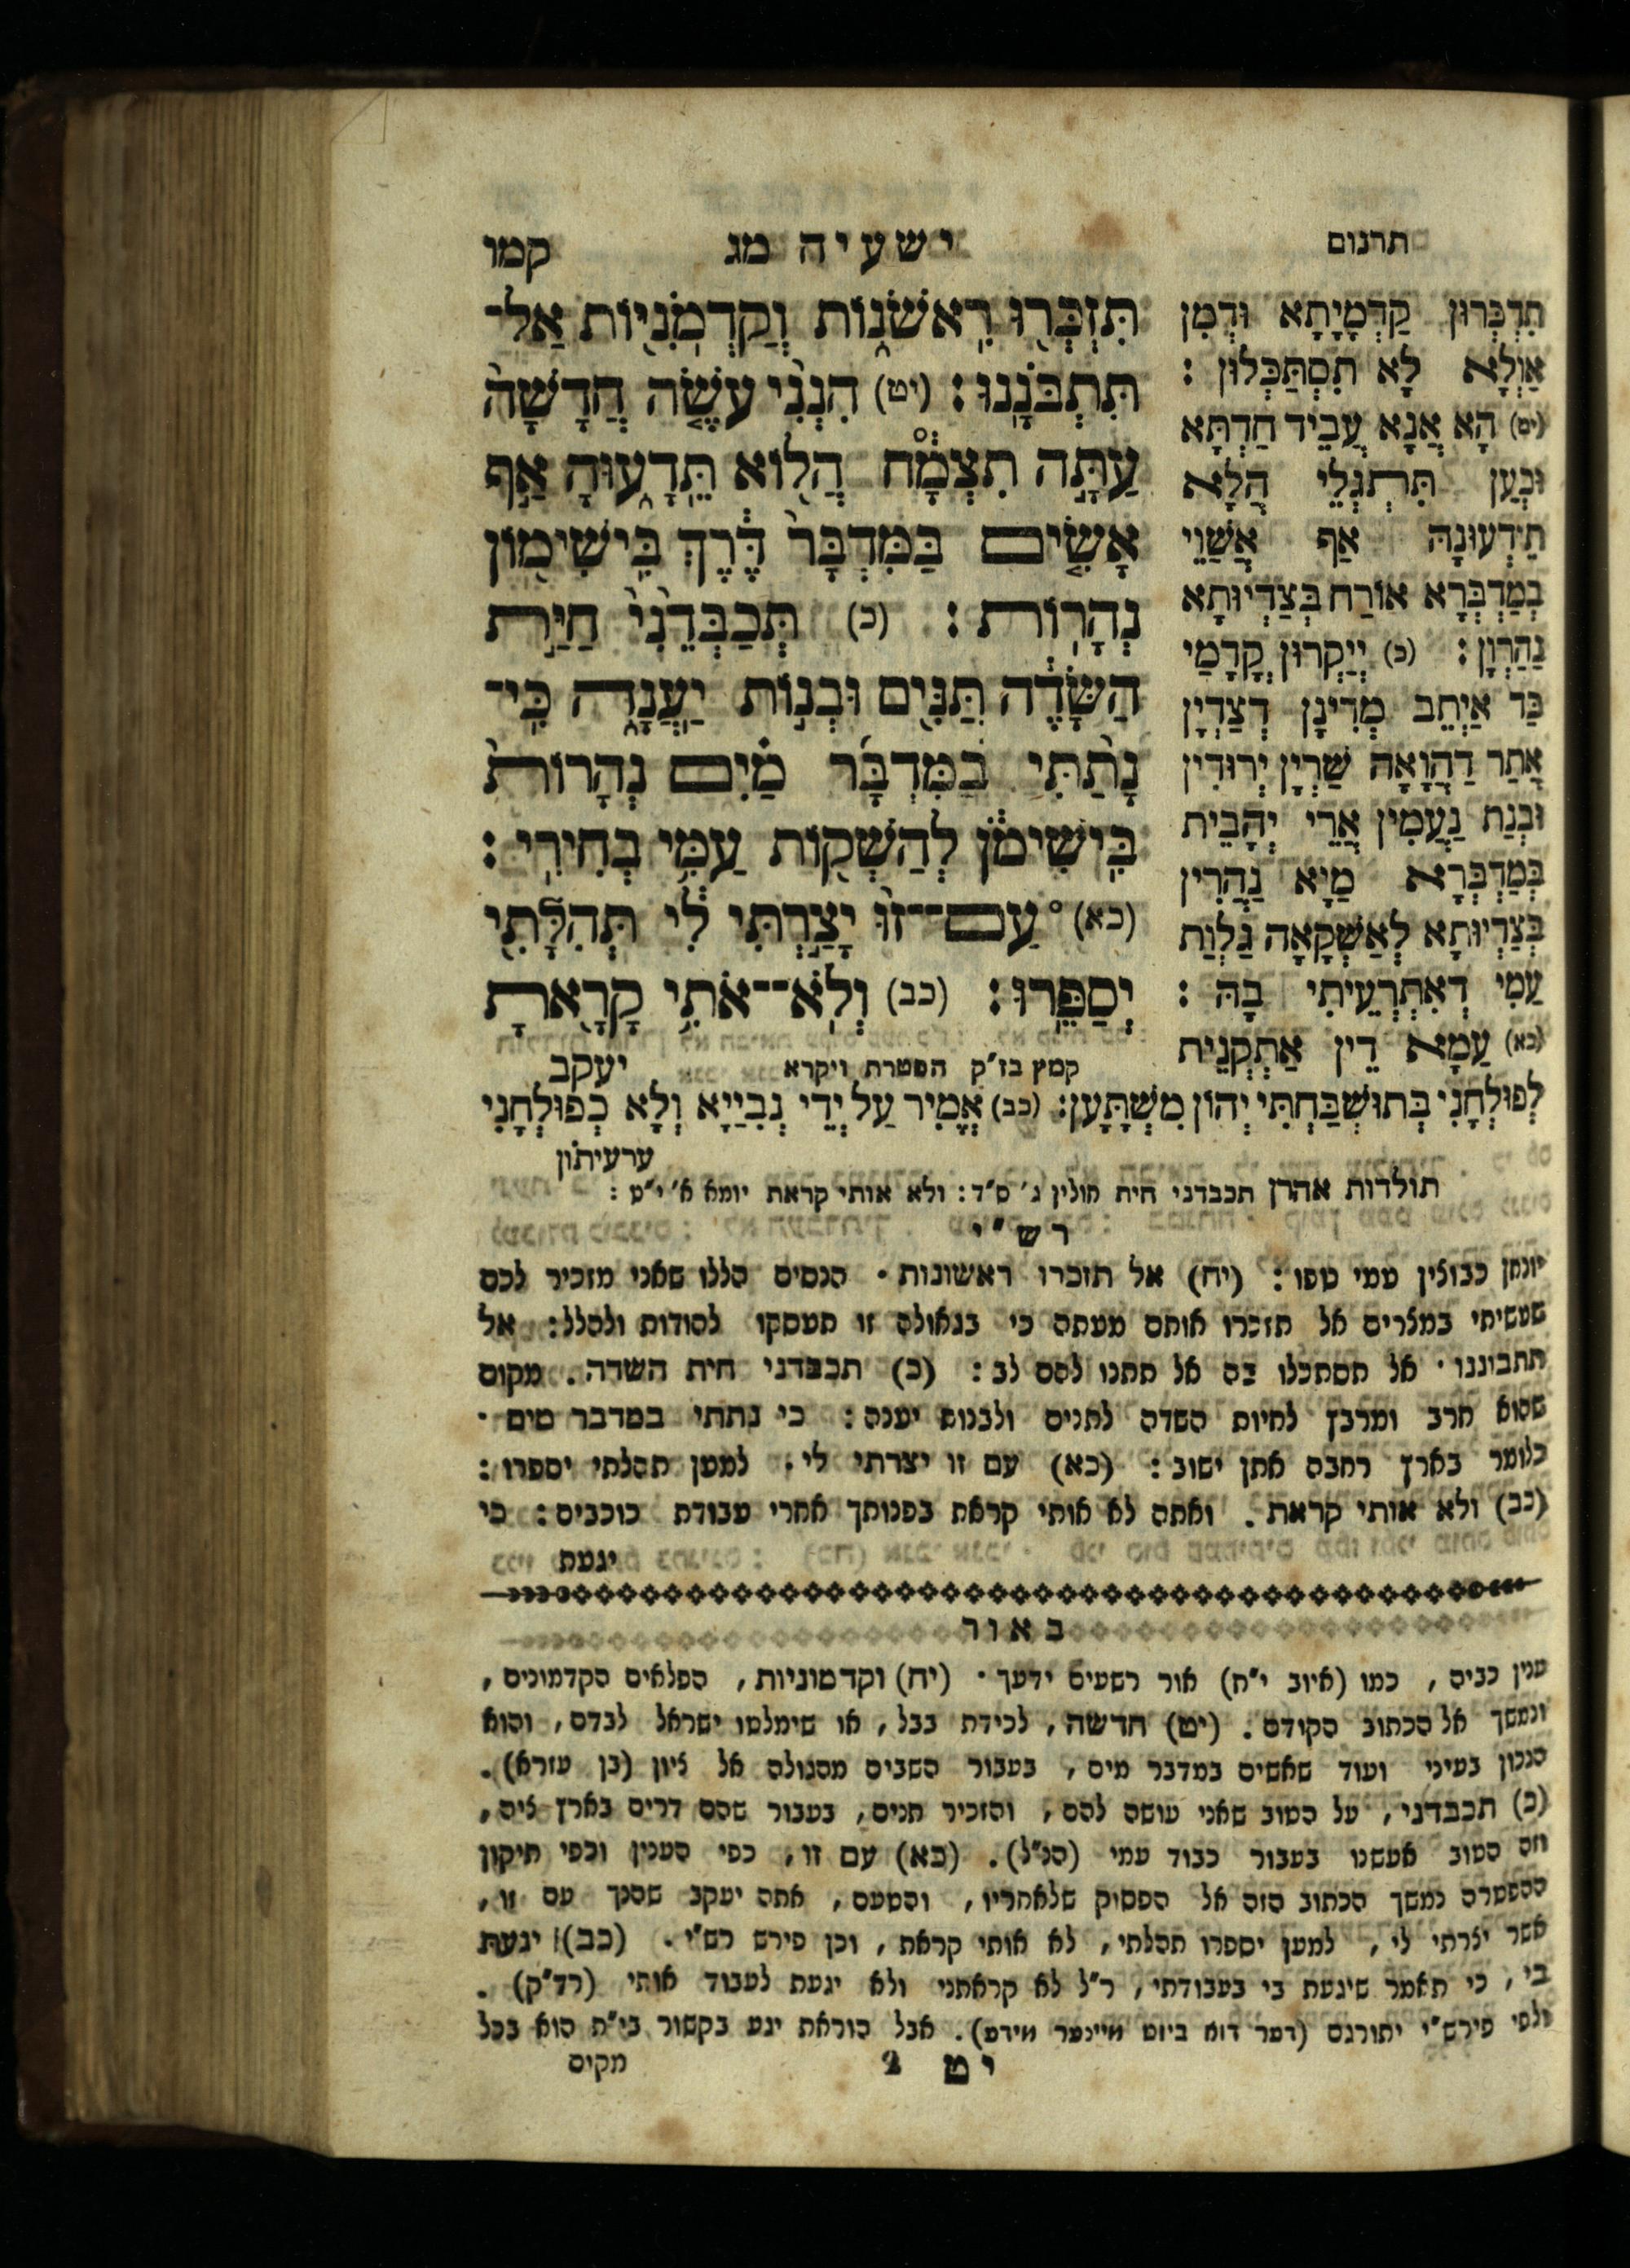 תרגום
ישעיה מג
קמו
תִּזְכְּר֖וּ רִֽאשֹׁנ֑וֹת וְקַדְמֹֽנִיּ֖וֹת אַל־
תִּתְבֹּנָֽנוּ׃ (יט) הִנְנִ֨י עֹשֶׂ֤ה חֲדָשָׁה֙
עַתָּ֣ה תִצְמָ֔ח הֲל֖וֹא תֵּֽדָע֑וּהָ אַ֣ף
אָשִׂ֤ים בַּמִּדְבָּר֙ דֶּ֔רֶךְ בִּֽישִׁימ֖וֹן
נְהָרֽוֹת׃ (כ) תְּכַבְּדֵ֙נִי֙ חַיַּ֣ת
הַשָּׂדֶ֔ה תַּנִּ֖ים וּבְנ֣וֹת יַֽעֲנָ֑ה כִּֽי־
נָתַ֨תִּי בַמִּדְבָּ֜ר מַ֗יִם נְהָרוֹת֙
בִּֽישִׁימֹ֔ן לְהַשְׁק֖וֹת עַמִּ֥י בְחִירִֽי׃
(כא) ° עַם־־זוּ֙ יָצַ֣רְתִּי לִ֔י תְּהִלָּתִ֖י
יְסַפֵּֽרוּ׃ (כב) וְלֹֽא־־אֹתִ֥י קָרָ֖אתָ
קמץ בז״ק הפטרת ויקרא
יעקב
תִדְכְּרוּן קַדְמָיָתָא וּדְמִן
אַוְלָא לָא תִסְתַּכְּלוּן :
(יט) הָא אֲנָא עֲבֵיד חַדְתָּא
וּכְעַן תִּתְגְּלֵי הֲלָא
תֵידְעוּנָהּ אַף אֱשַׁוֵי
בְמַדְבְּרָא אוֹרַח בְּצַדְיוּתָא
נַהֲרְוָן : (כ) יְיַקְרוּן קֳדָמַי
כַּד אַיְתֵב מְדִינָן דְצַדְיָן
אֲתַר דַהֲוָאָה שַׁרְיָן יְרוּדִין
וּבְנַת נַעֲמִין אֲרֵי יְהָבֵית
בְּמַדְבְּרָא מַיָא נַהֲרִין
בְּצַדְיוּתָא לְאַשְׁקָאָה גַּלְוַת
עַמִי דְאִתְרְעֵיתִי בָהּ :
(כא) עַמָא דֵין אַתְקְנֵית
לְפוּלְחָנִי בְּתוּשְׁבַּחְתִּי יְהוֹן מִשְׁתָּעַן׃ (כב) אֲמִיר עַל יְדֵי נְבִיַיָא וְלָא כְפוּלְחָנִי
ערעיתון
תולדות אהרן תכבדני חית חולין ג׳ ס״ד : ולא אותי קראת יומא א׳ י״ט :
רש״י
(יח) אל תזכרו ראשונות · הנסים הללו שאני מזכיר לכם
שעשיתי במצרים אל תזכרו אותם מעתה כי בגאולה זו תעסקו להודות ולהלל : אל
תתבוננו · אל תסתכלו בה אל תתנו להם לב : (כ) תכבדני חית השדה . מקום
שהוא חרב ומרבץ לחיות השדה לתנים ולבנות יענה : כי נתתי במדבר מים ·
כלומר בארץ רחבה אתן ישוב : (כא) עם זו יצרתי לי . למען תהלתי יספרו :
(כב) ולא אותי קראת . ואתה לא אותי קראת בפנותך אחרי עבודת כוכבים : כי
יגעת
באור
ענין כביה , כמו (איוב י״ח) אור רשעים ידעך · (יח) וקדמוניות , הפלאים הקדמונים ,
ונמשך אל הכתוב הקודם . (יט) חדשה , לכידת בבל , או שימלטו ישראל לבדם , והוא
הנכון בעיני ועוד שאשים במדבר מים , בעבור השבים מהגולה אל ציון (בן עזרא) .
(כ) תכבדני , על הטוב שאני עושה להם , והזכיר תנים , בעבור שהם דרים בארץ ציה ,
וזה הטוב אעשנו בעבור כבוד עמי (הנ״ל) . (כא) עם זו , כפי הענין וכפי תיקון
ההפטרה נמשך הכתוב הזה אל הפסוק שלאחריו , והטעם , אתה יעקב שהנך עם זו ,
אשר יצרתי לי , למען יספרו תהלתי , לא אותי קראת , וכן פירש רש״י . (כב) יגעת
בי , כי תאמר שיגעת בי בעבודתי , ר״ל לא קראתני ולא יגעת לעבוד אותי (רד״ק) .
ולפי פירש״י יתורגם (דער דוא ביזט מיינער מידע) . אבל הוראת יגע בקשור בי״ת הוא בכל
יט 2
מקום